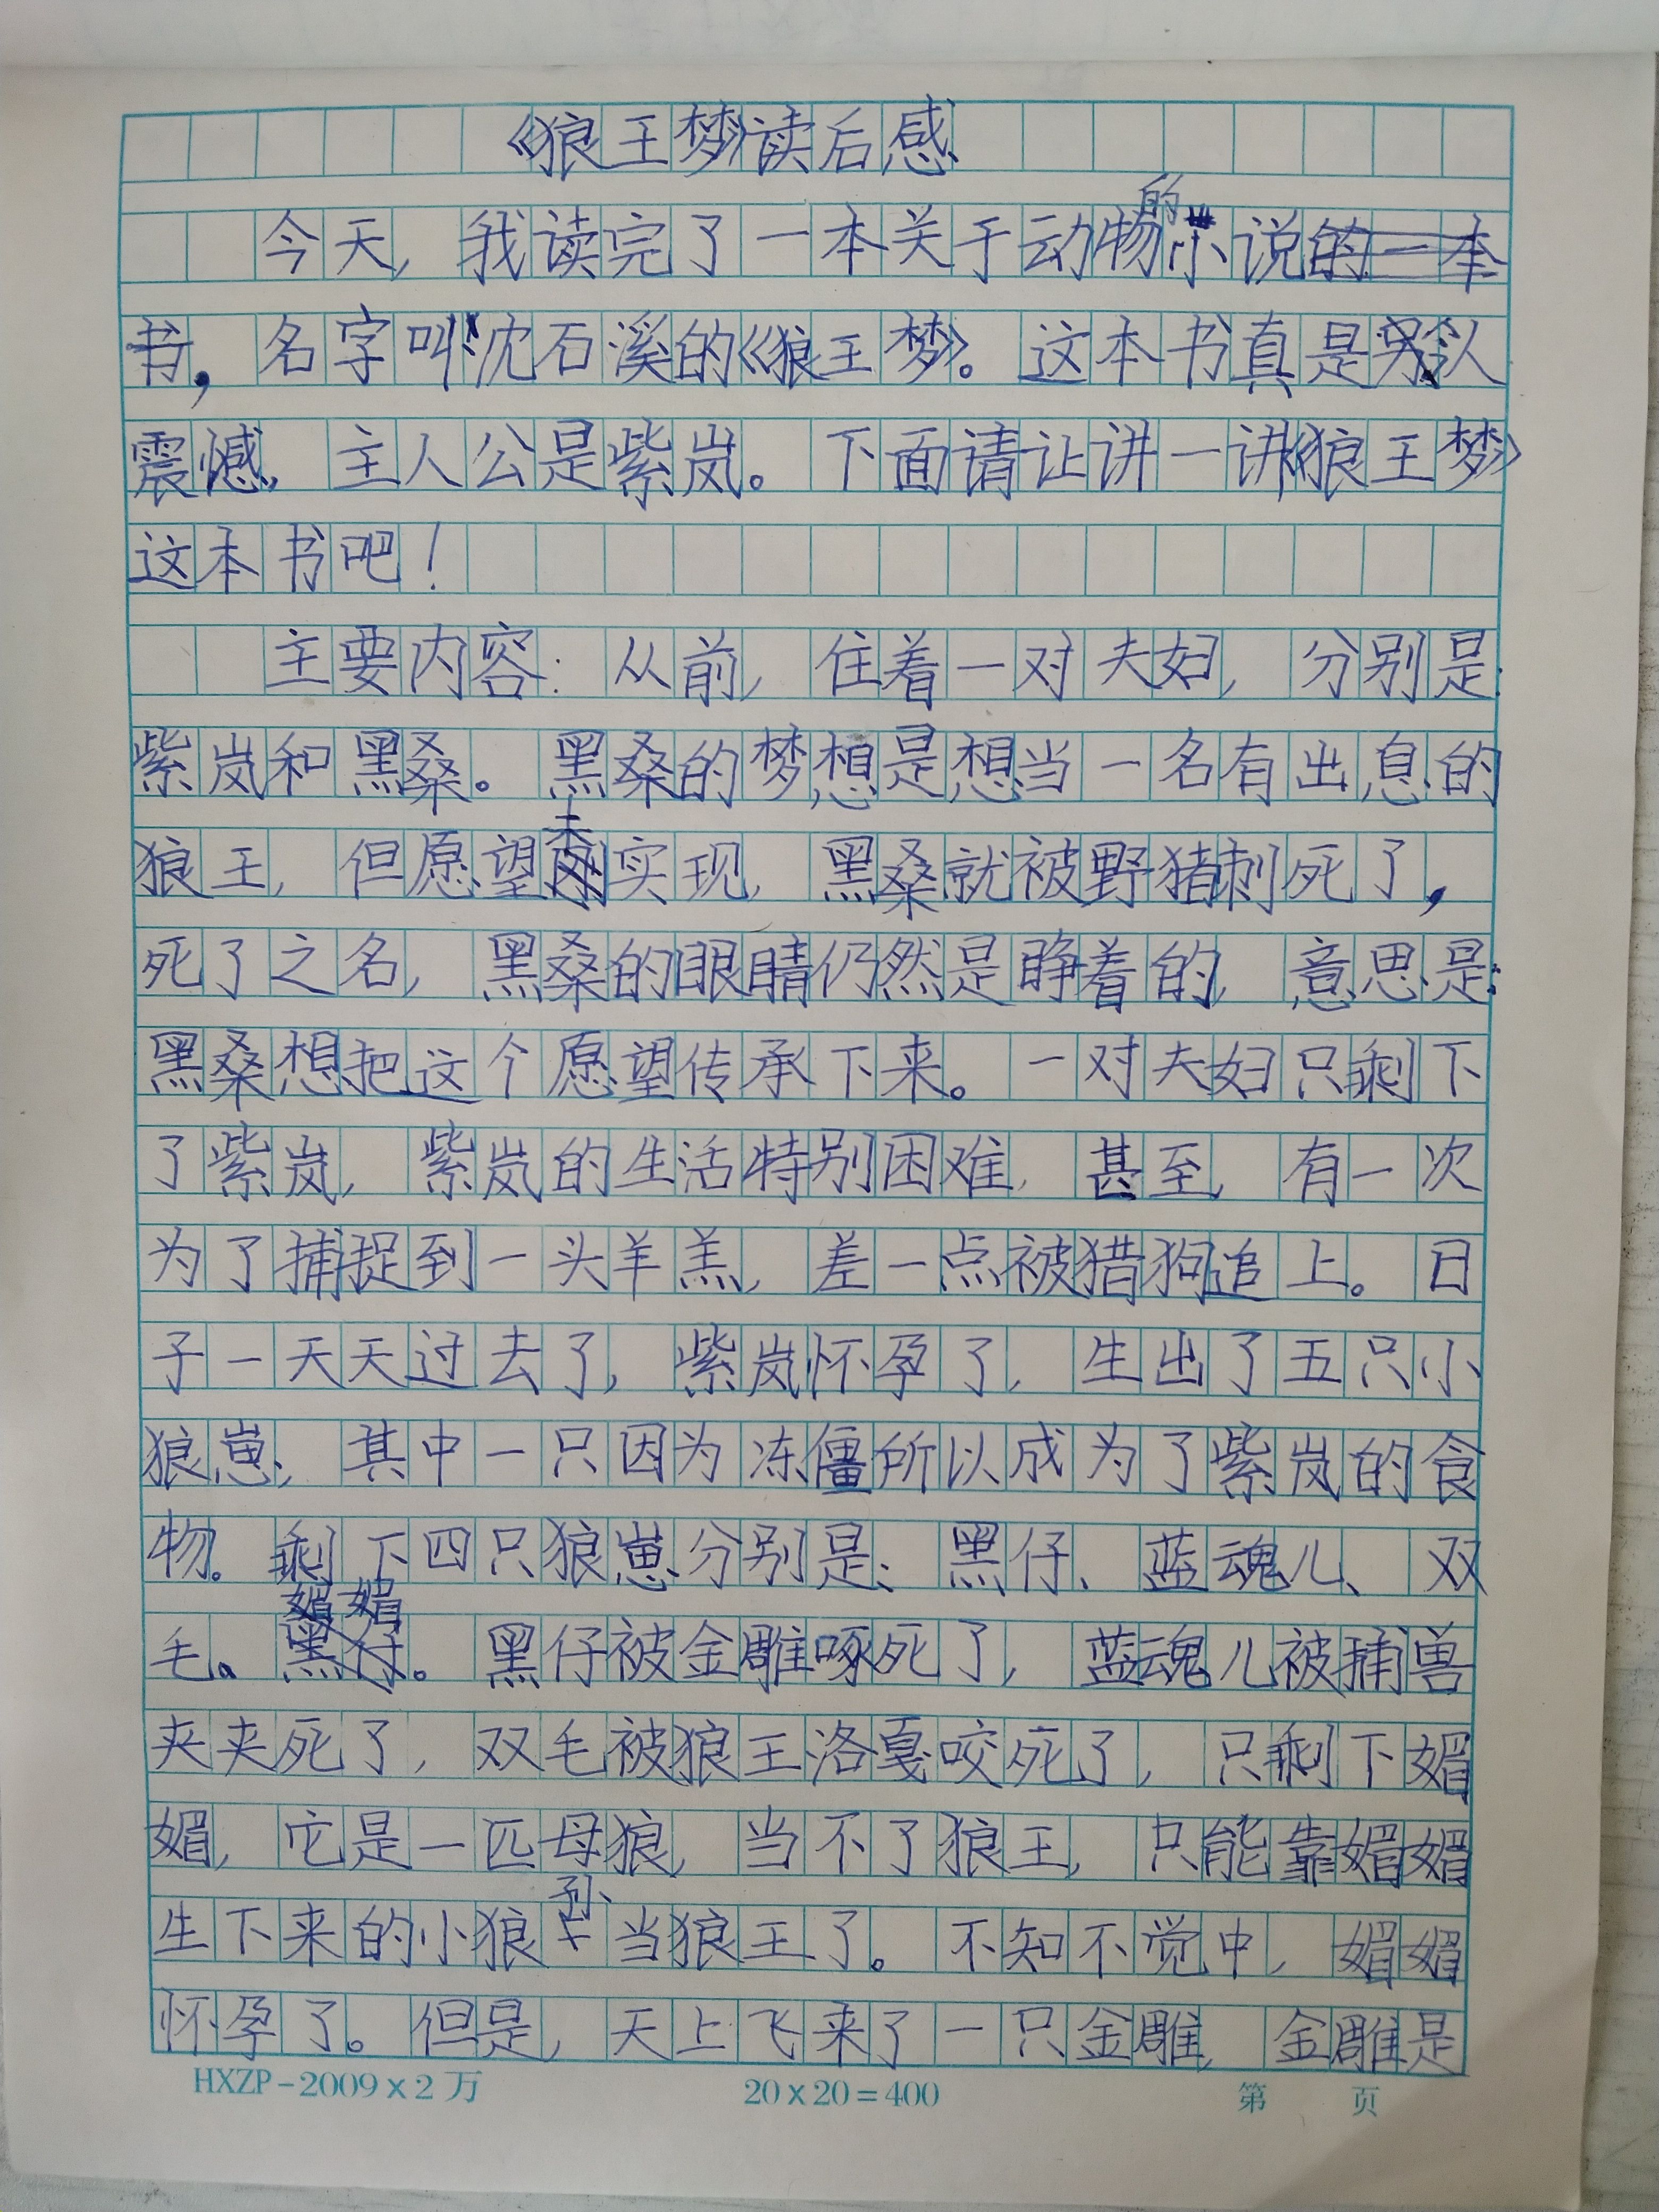 《狼王梦》读后感
今天，我读完了一本关于动物的小说
，名字叫沈石溪的《狼王梦》。这本书真是令人
震憾，主人公是紫岚。下面请让讲一讲《狼王梦》
这本书吧！
主要内容：从前，住着一对夫妇，分别是：
紫岚和黑桑。黑桑的梦想是想当一名有出息的
狼王，但愿望未实现，黑桑就被野猪刺死了，
死了之名，黑桑的眼睛仍然是睁着的，意思是：
黑桑想把这个愿望传承下来。一对夫妇只剩下
了紫岚，紫岚的生活特别困难，甚至，有一次
为了捕捉到一头羊羔，差一点被猎狗追上。日
子一天天过去了，紫岚怀孕了，生出了五只小
狼崽，其中一只因为冻僵所以成为了紫岚的食
物。剩下四只狼崽分别是、黑仔、蓝魂儿、双
毛。媚媚。黑仔被金雕啄死了，蓝魂儿被捕兽
夹夹死了，双毛被狼王洛戛咬死了，只剩下媚
媚，它是一匹母狼，当不了狼王，只能靠媚媚
生下来的小狼孙当狼王了。不知不觉中，媚媚
怀孕了。但是，天上飞来了一只金雕，金雕是
HXZP-2009×2万 20×20=400 第 页